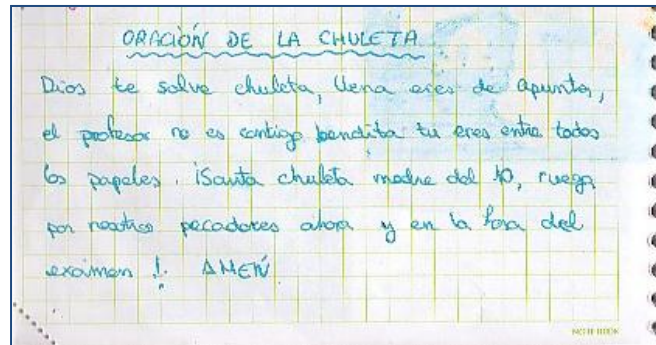 ORACIÓN DE LA CHULETA
Dios te salve chuleta, llena eres de apuntes,
el profesor no es contigo bendita tu eres entre todos
los papeles. ¡Santa chuleta madre del 10, ruega
por nosotros pecadores ahora y en la hora del
examen!. AMEN
NOTE BOOK